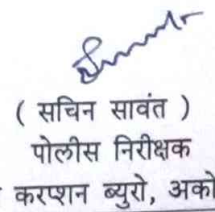 ( सचिन सावंत )
पोलीस निरीक्षक
करप्शन ब्युरो, अको